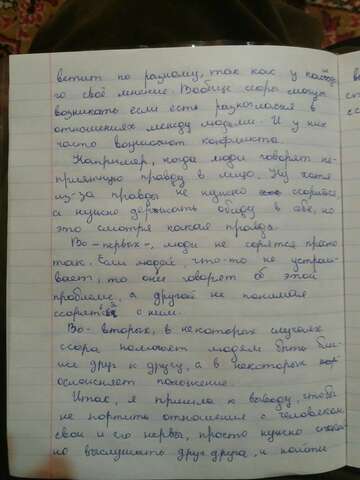 ветит по разному, так как у каждо
го своё мнение. Вообще ссоры могут
возникать если есть разногласия в
отношениях между людьми. И у них
часто возникают конфликты.
Например, когда люди говорят не-
приятную правду в лицо. Ну хотя
из-за правды не нужно ссорится
а нужно держать обиду в себе, но
это смотря какая правда.
Во-первых-, люди не сорятся просто
так. Если людей, что-то не устраи-
вает, то они говорят об этой
проблеме, а другой не понимая
ссорятся с ним.
Во-вторых, в некоторых случаях
ссора помогает людям быть бли-
же друг к другу, а в некоторых
осложняет положение.
Итак, я пришла к выводу, чтобы
не портить отношения с человеком
свои и его нервы, просто нужно спокой
но выслушать друг друга, и найти